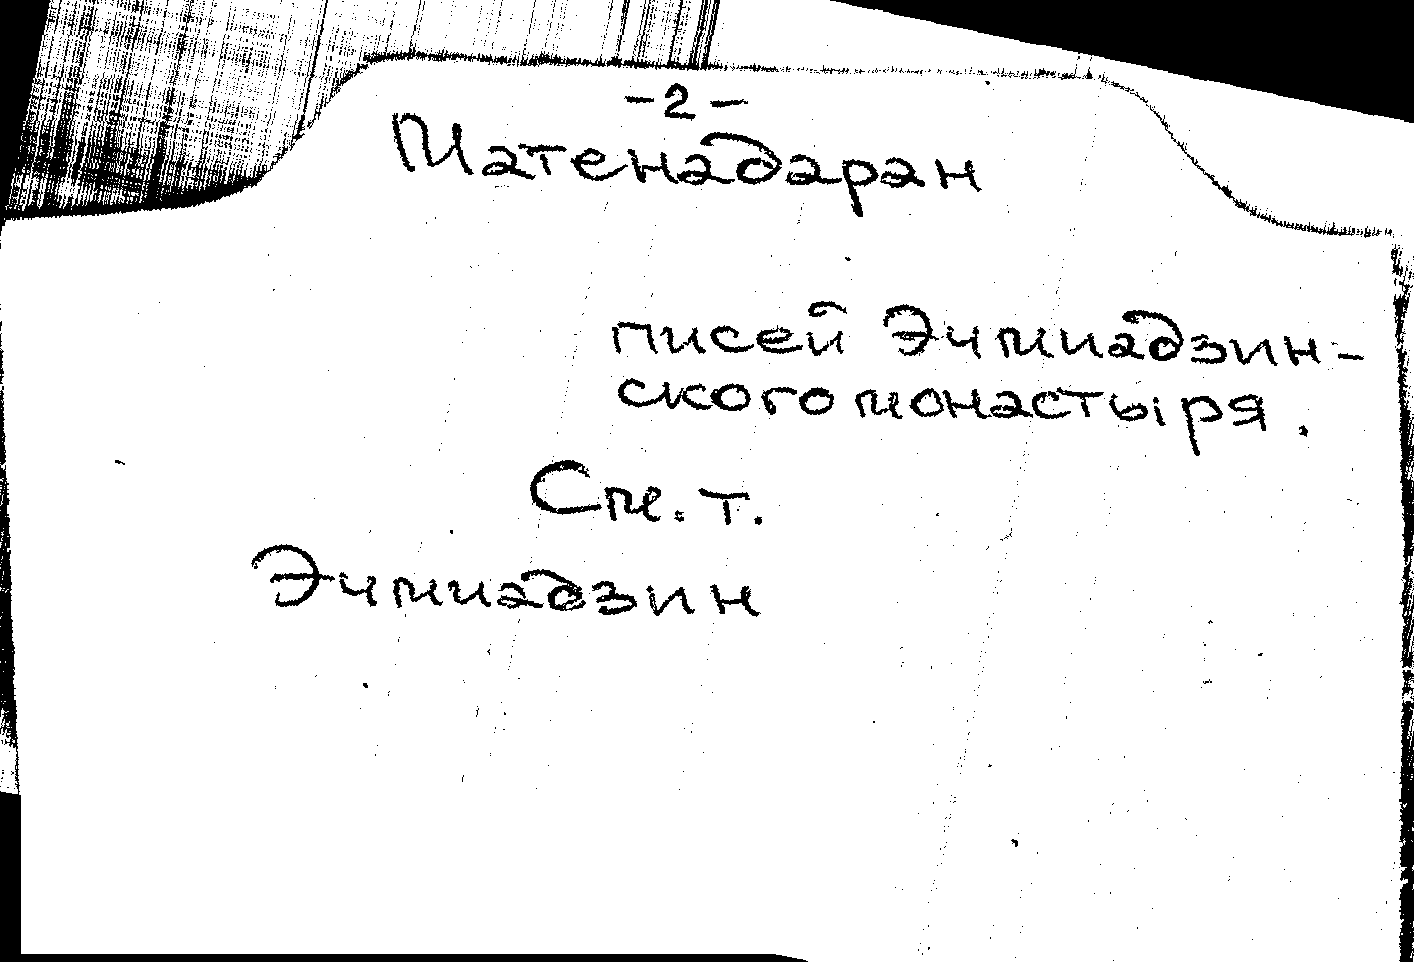 -2-
Матенадаран
писей Эчмиадзин-
ского монастыря.
См. т.
Эчмиадзин